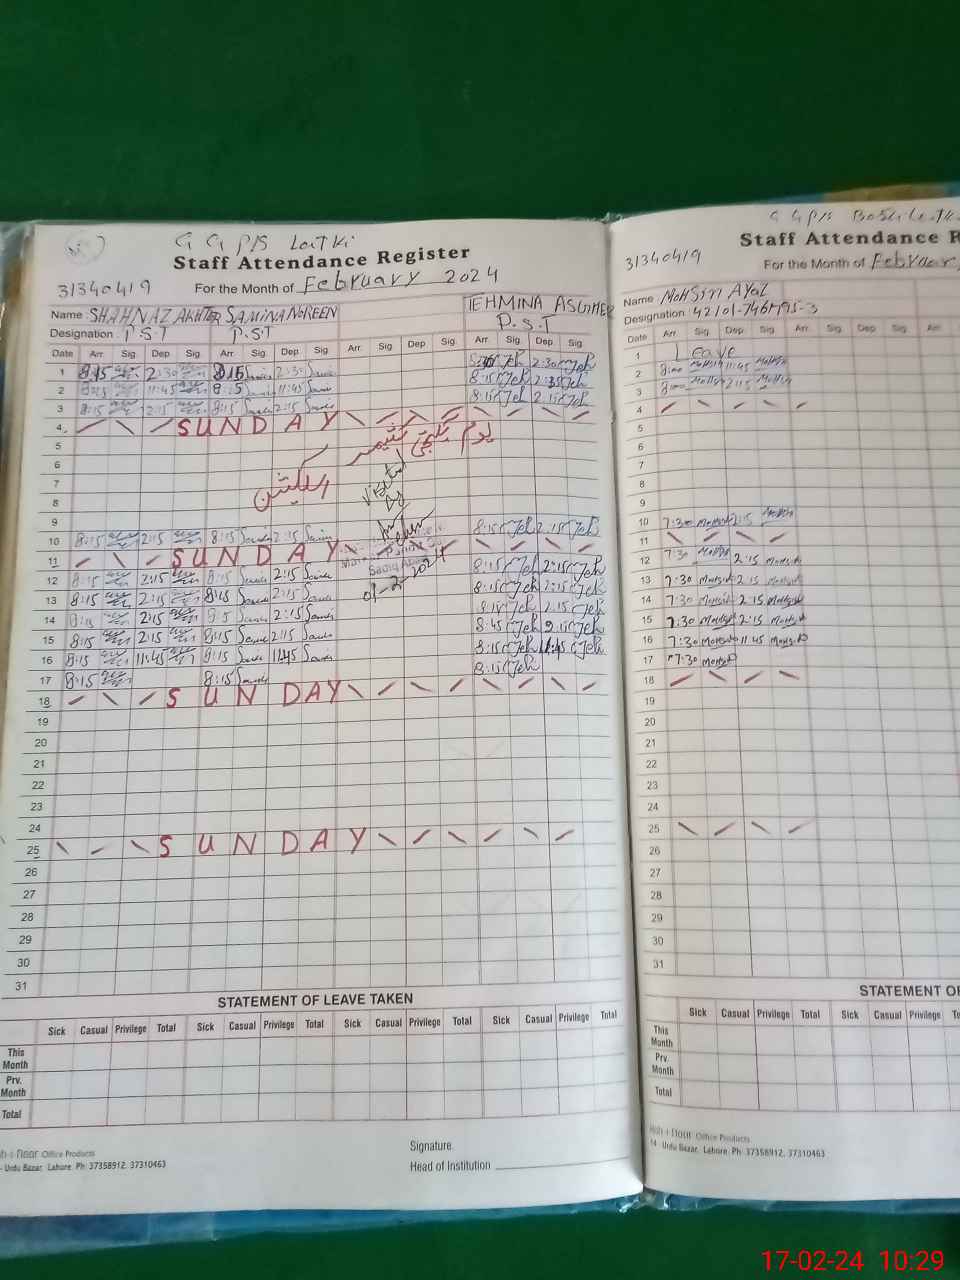 G G P/S Latki
Staff Attendance Register
31340419 For the Month of February 2024
Name : SHAHNAZ AKHTER SAMINA NOREEN TEHMINA ASGHER
Designation : P.S.T P.S.T P.S.T
Date Arr Sig Dep Sig Arr Sig Dep Sig Arr Sig Dep Sig Arr Sig Dep Sig
1 8:15 2:30 8:15 2:30 2:30
2 8:15 11:45 8:15 11:45 8:15
3 8:15 2:15 8:15 2:15 8:15 2:15
4 SUNDAY
5
6
7
8
الیکشن
Visited
9
10 8:15 2:15 8:15 2:15 8:15 2:15
11 SUNDAY
12 8:15 2:15 8:15 2:15 8:15 2:15
13 8:15 2:15 8:15 2:15 8:15 2:15
01-2-2024
14 8:15 2:15 2:15 8:15 2:15
15 8:15 2:15 8:15 2:15 8:45
16 8:15 11:45 8:15 11:45 8:15 11:45
17 8:15 8:15 8:15
18 SUNDAY
19
20
21
22
23
24
25 SUNDAY
26
27
28
29
30
31
STATEMENT OF LEAVE TAKEN
Sick Casual Privilege Total Sick Casual Privilege Total Sick Casual Privilege Total Sick Casual Privilege Total
This Month
Prv. Month
Total
Signature
Head of Institution
Office Products
- Urdu Bazar, Lahore. Ph: 37358912, 37310463
G G P/S
Staff Attendance R
31340419 For the Month of February
Name : Mohsin Ayaz
Designation
Date Arr Sig Dep Sig Arr Sig Dep Sig Arr
1 Leave
2 8:00 Mohsin 11:45 Mohsin
3 8:00 Mohsin 2:15 Mohsin
4
5
6
7
8
9
10 7:30 Mohsin 2:15 Mohsin
11
12 7:30 Mohsin 2:15 Mohsin
13 7:30 Mohsin 2:15 Mohsin
14 7:30 Mohsin 2:15 Mohsin
15 7:30 Mohsin 2:15 Mohsin
16 7:30 Mohsin 11:45 Mohsin
17 7:30 Mohsin
18
19
20
21
22
23
24
25
26
27
28
29
30
31
STATEMENT OF
Sick Casual Privilege Total Sick Casual Privilege
This Month
Prv. Month
Total
Office Products
14 - Urdu Bazar, Lahore. Ph: 37358912, 37310463
17-02-24 10:29